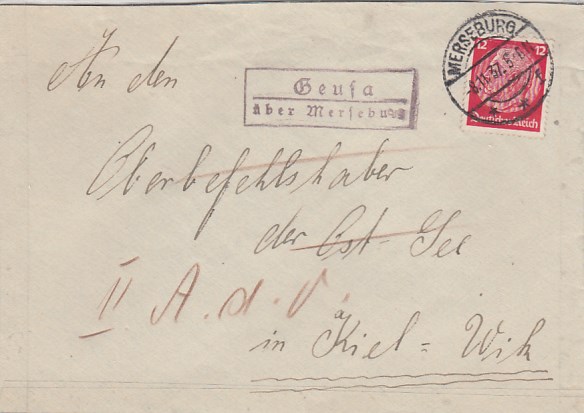 An den
Geusa
über Merseburg
MERSEBURG
-8.11.37. 8-
12 12
Deutsches Reich
Oberbefehlshaber
der Ost-See
II A. d. V.
in Kiel = Wik